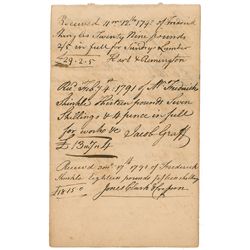 Received 11 mo 12th 1790 of Frederick
Twenty Nine pounds
2/5 in full for Sundry Lumber
£29..2..5 Earl & Remington
Recd Feby 4th 1791 of Mr Fredrick
Shinkle Thirteen pounds Seven
Shillings & 4 pence in full
for works &c Jacob Graff
£13 „ 7 „ 4
Received 17th 1791 of Frederick
Shinkle Eighteen pounds fifteen shillings
£18.15.0 Jones Clark &